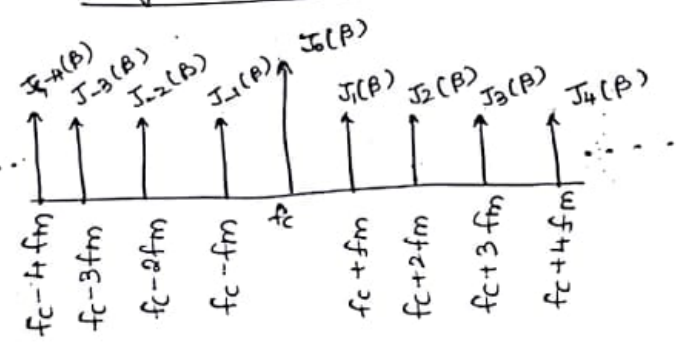 J-4(β) J-3(β) J-2(β) J-1(β) J0(β) J1(β) J2(β) J3(β) J4(β)
... .....
fc-4fm fc-3fm fc-2fm fc-fm fc fc+fm fc+2fm fc+3fm fc+4fm